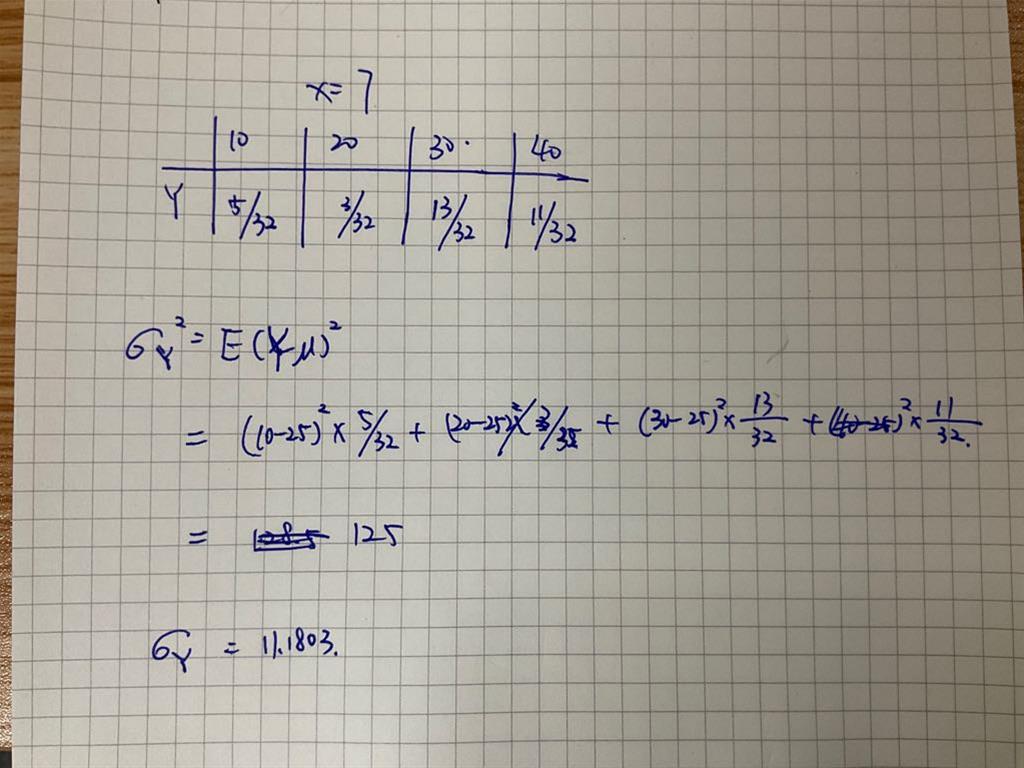 x= 7
10 20 30. 40
Y 5/32 3/32 13/32 11/32
σY² = E(Y-μ)²
= (10-25)² × 5/32 + (20-25)² × 3/32 + (30-25)² × 13/32 + (40-25)² × 11/32.
= 125
σY = 11.1803.